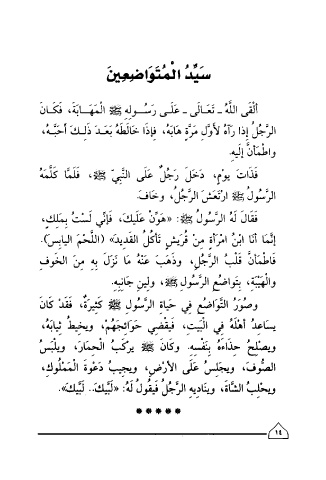 سَيِّدُ الْمُتَوَاضِعِينَ
ألْقَى اللَّهُ ـ تَعَالَى ـ عَلَى رَسُولِهِ ﷺ الْمَهَابَةَ، فَكَانَ
الرَّجُلُ إذَا رَآهُ لأوَّلِ مَرَّةٍ هَابَهُ، فَإِذَا خَالَطَهُ بَعْدَ ذَلِكَ أحَبَّهُ،
وَاطْمَأنَّ إلَيهِ.
فَذَاتَ يَومٍ، دَخَلَ رَجُلٌ عَلَى النَّبِيِّ ﷺ، فَلَمَّا كَلَّمَهُ
الرَّسُولُ ﷺ ارْتَعَشَ الرَّجُلُ، وخَافَ.
فَقَالَ لَهُ الرَّسُولُ ﷺ: «هَوِّنْ عَلَيكَ، فَإنِّي لَسْتُ بِمَلِكٍ،
إنَّمَا أنَا ابْنُ امْرَأةٍ مِنْ قُرَيشٍ تَأكُلُ القَدِيدَ» (اللَّحْمَ اليَابِسَ).
فَاطْمَأنَّ قَلْبُ الرَّجُلِ، وذَهَبَ عَنْهُ مَا نَزَلَ بِهِ مِنَ الخَوفِ
والْهَيْبَةِ، بِتَوَاضُعِ الرَّسُولِ ﷺ، ولِينِ جَانِبِهِ.
وصُوَرُ التَّوَاضُعِ فِي حَيَاةِ الرَّسُولِ ﷺ كَثِيرَةٌ، فَقَدْ كَانَ
يسَاعِدُ أهْلَهُ فِي الْبَيتِ، فَيَقْضِي حَوَائِجَهُمْ، ويخِيطُ ثِيابَهُ،
ويصْلِحُ حِذَاءَهُ بِنَفْسِهِ. وكَانَ ﷺ يرْكَبُ الْحِمَارَ، ويلْبَسُ
الصُّوفَ، ويجْلِسُ عَلَى الأرْضِ، ويجِيبُ دَعْوَةَ الْمَمْلُوكِ،
ويحْلِبُ الشَّاةَ، وينَادِيهِ الرَّجُلُ فَيقُولُ لَهُ: «لَبَّيكَ.. لَبَّيكَ».
*****
١٤